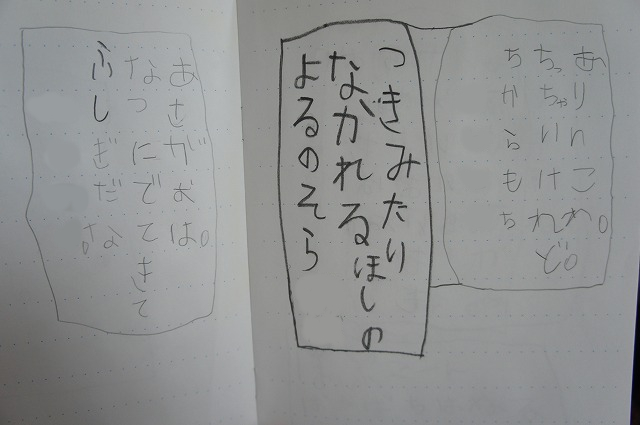 ありんこわ。
ちっちゃいけれど。
ちからもち
つきみたり
ながれるほしの
よるのそら
あさがおは。
なつにでてきて
ふしぎだな。